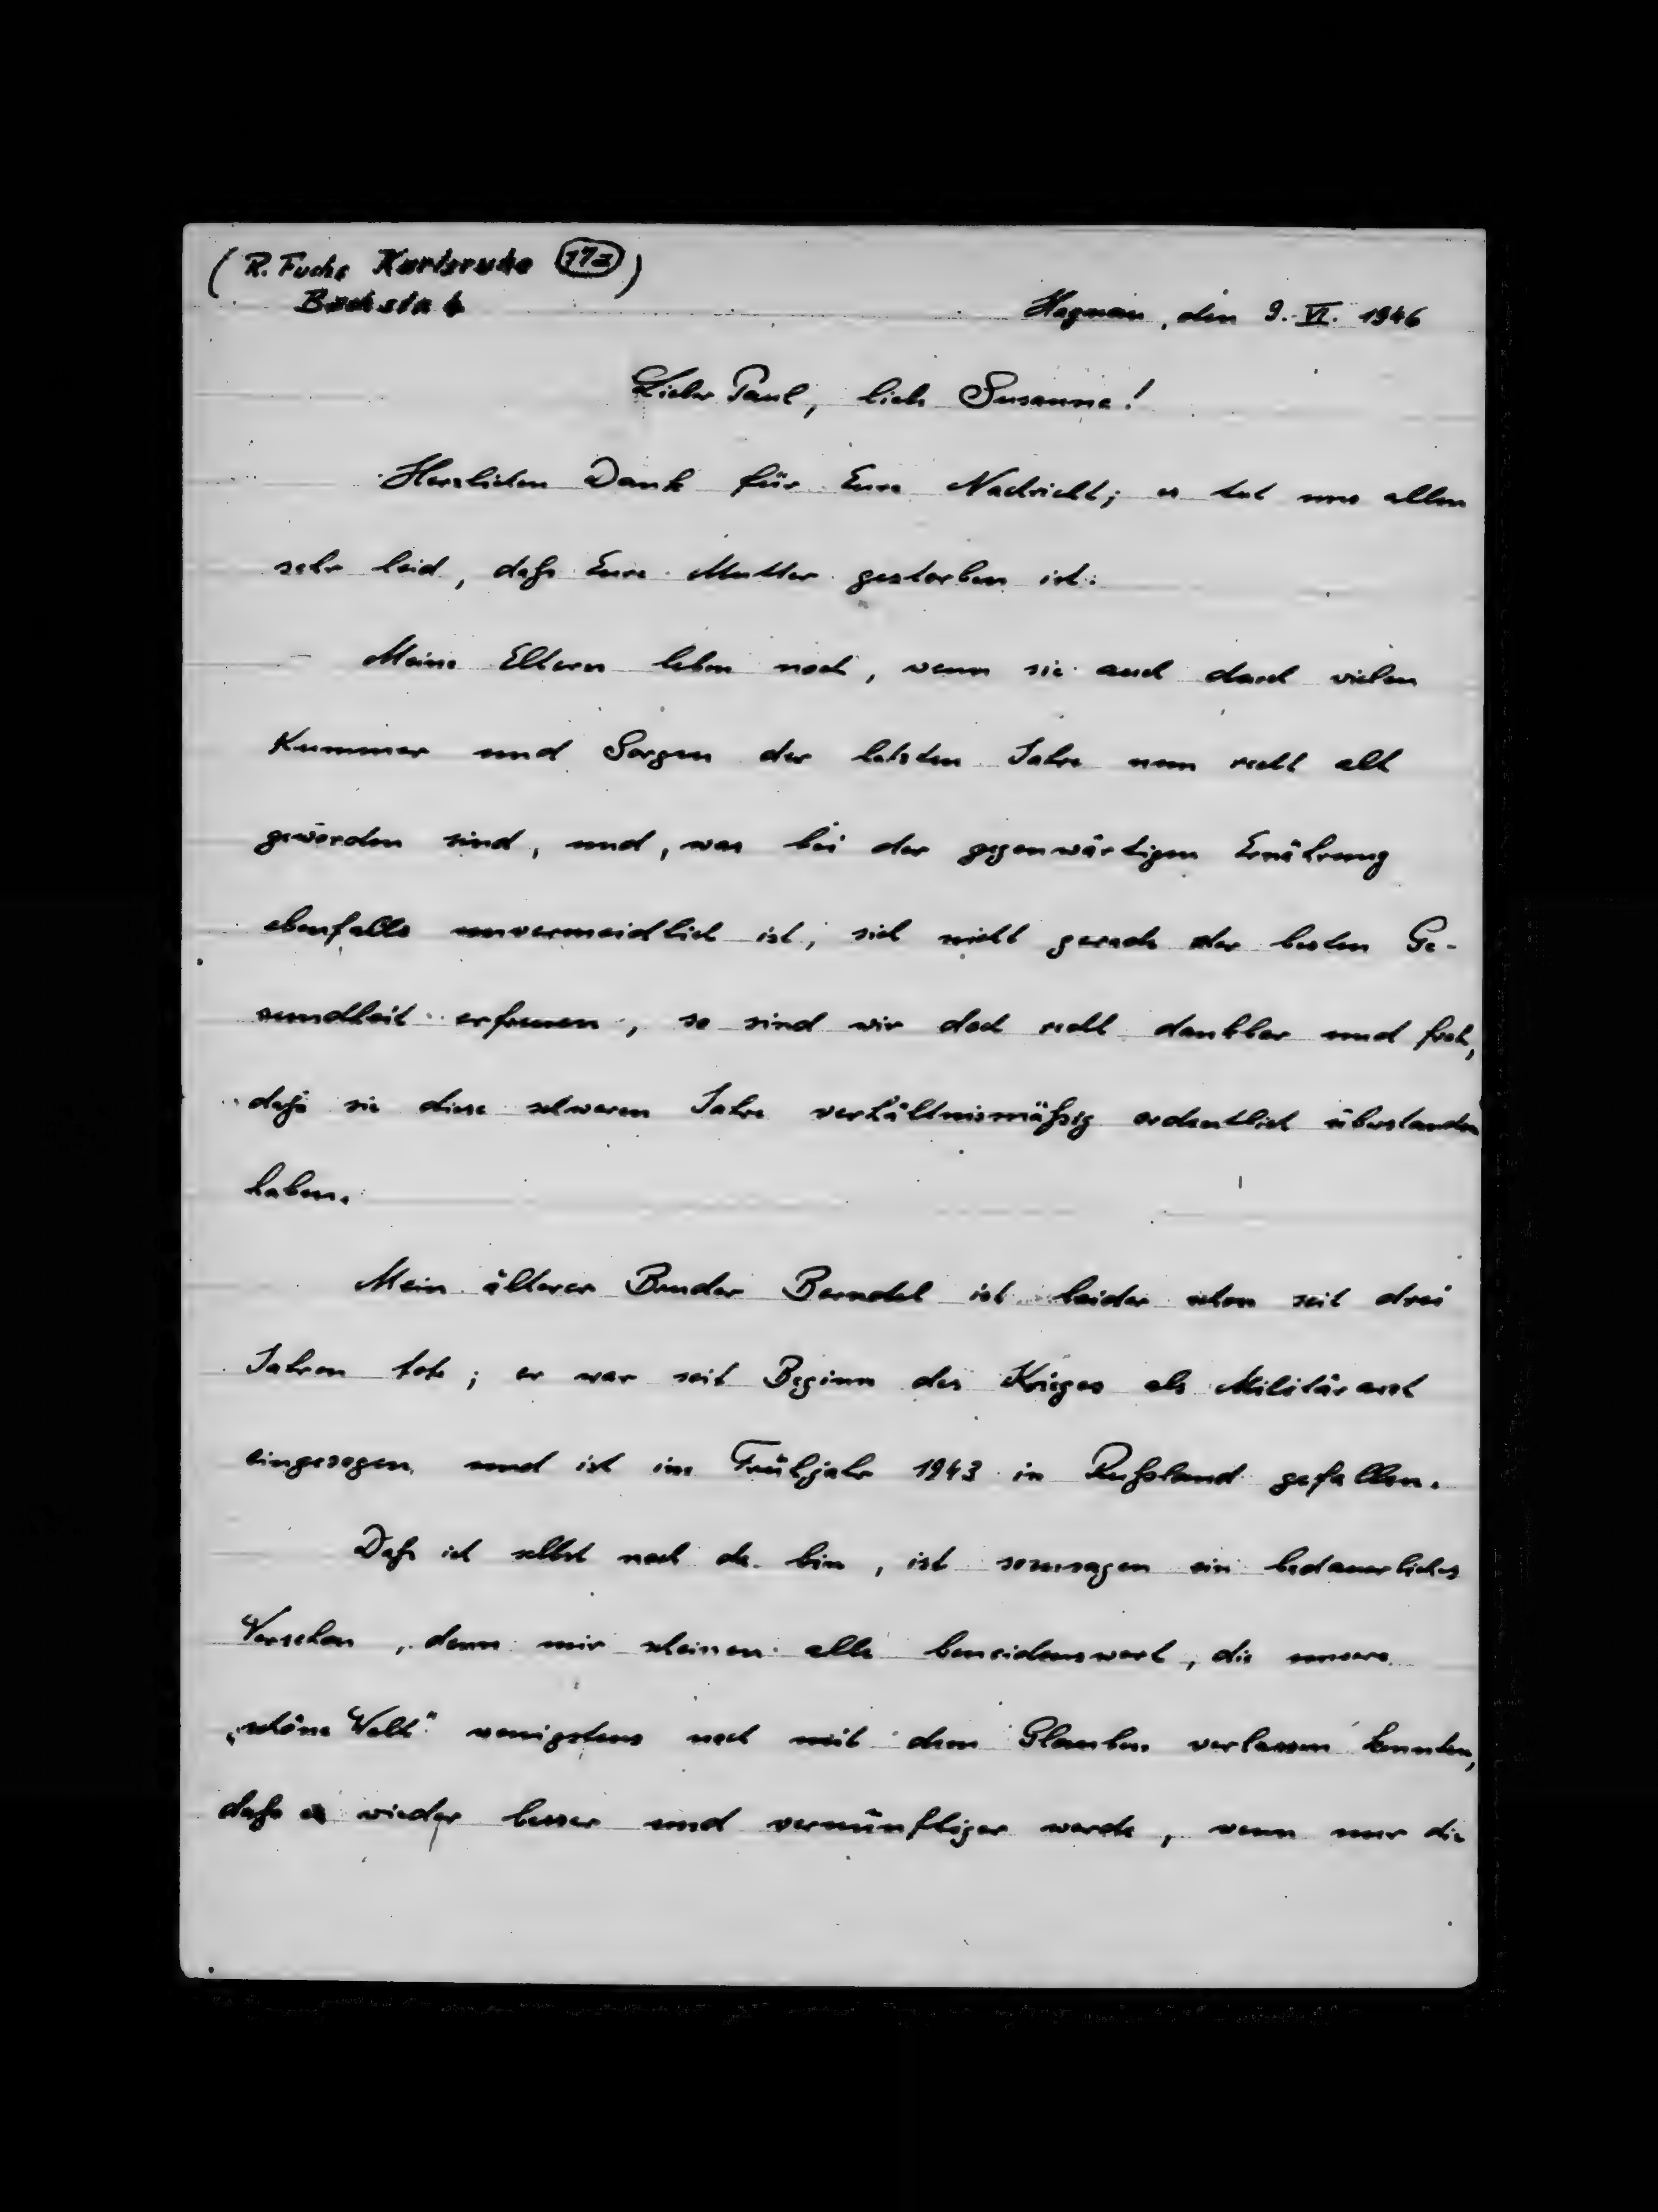 (R. Fuchs Karlsruhe 17a)
Hagnau, den 9. VI. 1946
Lieber Paul, liebe Susanne!
Herzlichen Dank für Eure Nachricht; es tut uns allen
sehr leid, daß Eure Mutter gestorben ist.
Meine Eltern leben noch, wenn sie auch durch vielen
Kummer und Sorgen der letzten Jahre nun recht alt
geworden sind, und, was bei der gegenwärtigen Ernährung
ebenfalls unvermeidlich ist, sich nicht gerade der besten Ge-
sundheit erfreuen, so sind wir doch recht dankbar und froh,
daß sie diese schweren Jahre verhältnismäßig ordentlich überstanden
haben.
Mein älterer Bruder Berndel ist leider schon seit drei
Jahren tot; er war seit Beginn des Krieges als Militärarzt
eingezogen und ist im Frühjahr 1943 in Rußland gefallen.
Daß ich selbst noch da bin, ist sozusagen ein bedauerliches
Versehen, denn mir scheinen alle beneidenswert, die unsere
„schöne Welt" wenigstens noch mit dem Glauben verlassen konnten,
daß es wieder besser und vernünftiger werde, wenn nur die